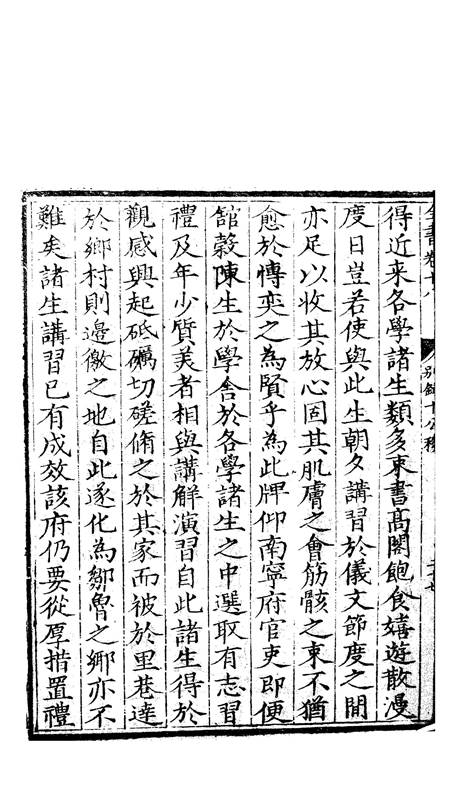 全書卷十八　別錄十公移
得近来各學諸生類多束書髙閣飽食嬉遊散漫
度日豈若使與此生朝夕講習於儀文節度之間
亦足以收其放心固其肌膚之會筋骸之束不猶
愈於愽奕之為賢乎為此牌仰南寧府官吏即便
舘糓陳生於學舎於各學諸生之中選取有志習
禮及年少質美者相與講解演習自此諸生得於
觀感興起砥礪切磋脩之於其家而被於里巷達
於鄉村則邉徼之地自此遂化為鄒魯之鄉亦不
難矣諸生講習已有成效該府仍要從厚措置禮